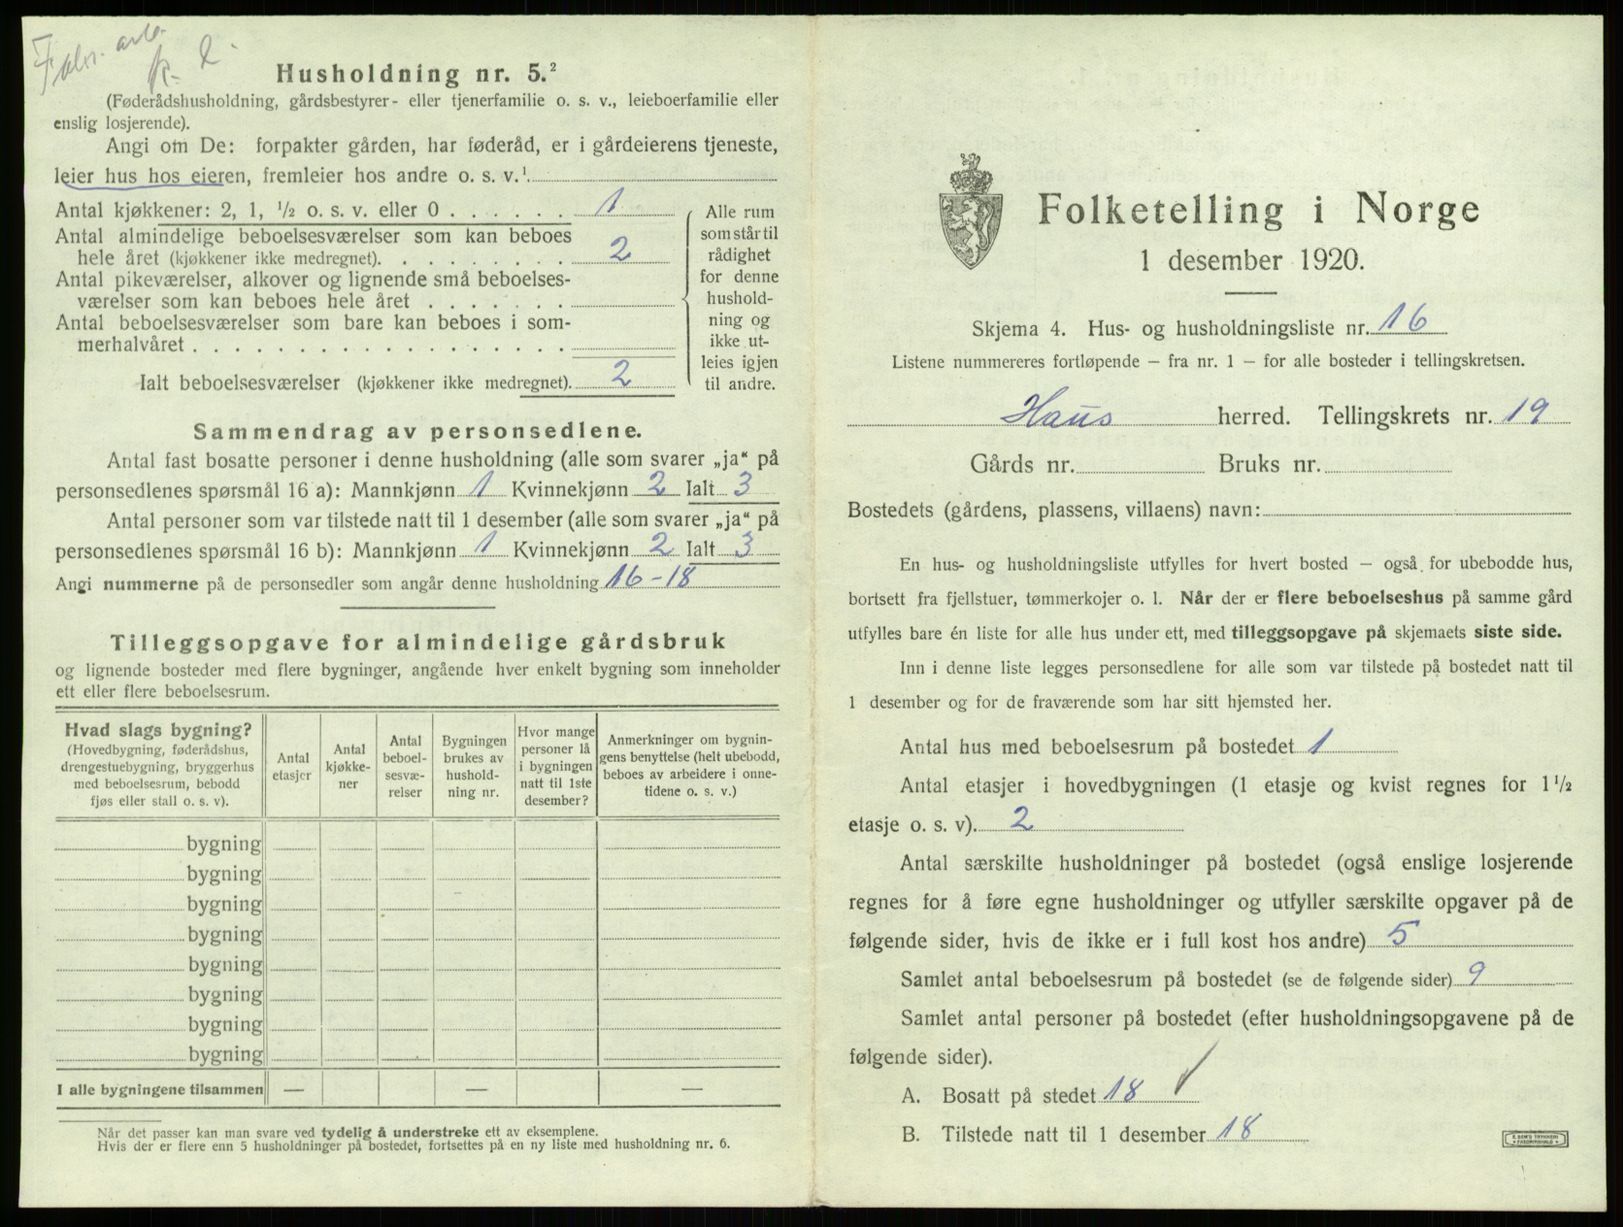 Fabr. arb.
k. 2.
Husholdning nr. 5.²
(Føderådshusholdning, gårdsbestyrer- eller tjenerfamilie o. s. v., leieboerfamilie eller
enslig losjerende).
Angi om De: forpakter gården, har føderåd, er i gårdeierens tjeneste,
leier hus hos eieren, fremleier hos andre o. s. v.¹
Antal kjøkkener: 2, 1, ½ o. s. v. eller 0 . . . . . . 1
Antal almindelige beboelsesværelser som kan beboes
hele året (kjøkkener ikke medregnet). . . . . . . . . 2
Antal pikeværelser, alkover og lignende små beboelses-
værelser som kan beboes hele året . . . . . . .
Antal beboelsesværelser som bare kan beboes i som-
merhalvåret . . . . . . . . . . . . . . . . . .
Ialt beboelsesværelser (kjøkkener ikke medregnet). 2
Alle rum
som står til
rådighet
for denne
hushold-
ning og
ikke ut-
leies igjen
til andre.
Sammendrag av personsedlene.
Antal fast bosatte personer i denne husholdning (alle som svarer „ja“ på
personsedlenes spørsmål 16 a): Mannkjønn 1 Kvinnekjønn 2 Ialt 3
Antal personer som var tilstede natt til 1 desember (alle som svarer „ja“ på
personsedlenes spørsmål 16 b): Mannkjønn 1 Kvinnekjønn 2 Ialt 3
Angi nummerne på de personsedler som angår denne husholdning 16-18
Tilleggsopgave for almindelige gårdsbruk
og lignende bosteder med flere bygninger, angående hver enkelt bygning som inneholder
ett eller flere beboelsesrum.
Hvad slags bygning?
(Hovedbygning, føderådshus,
drengestuebygning, bryggerhus
med beboelsesrum, bebodd
fjøs eller stall o. s. v).
Antal
etasjer
Antal
kjøkke-
ner
Antal
beboel-
sesvæ-
relser
Bygningen
brukes av
hushold-
ning nr.
Hvor mange
personer lå
i bygningen
natt til 1ste
desember?
Anmerkninger om bygnin-
gens benyttelse (helt ubebodd,
beboes av arbeidere i onne-
tidene o. s. v.)
bygning
bygning
bygning
bygning
bygning
bygning
bygning
bygning
I alle bygningene tilsammen — — —
Når det passer kan man svare ved tydelig å understreke ett av eksemplene.
Hvis der er flere enn 5 husholdninger på bostedet, fortsettes på en ny liste med husholdning nr. 6.
Folketelling i Norge
1 desember 1920.
Skjema 4. Hus- og husholdningsliste nr. 16
Listene nummereres fortløpende — fra nr. 1 — for alle bosteder i tellingskretsen.
Haus herred. Tellingskrets nr. 19
Gårds nr. Bruks nr.
Bostedets (gårdens, plassens, villaens) navn:
En hus- og husholdningsliste utfylles for hvert bosted — også for ubebodde hus,
bortsett fra fjellstuer, tømmerkojer o. l. Når der er flere beboelseshus på samme gård
utfylles bare én liste for alle hus under ett, med tilleggsopgave på skjemaets siste side.
Inn i denne liste legges personsedlene for alle som var tilstede på bostedet natt til
1 desember og for de fraværende som har sitt hjemsted her.
Antal hus med beboelsesrum på bostedet 1
Antal etasjer i hovedbygningen (1 etasje og kvist regnes for 1½
etasje o. s. v). 2
Antal særskilte husholdninger på bostedet (også enslige losjerende
regnes for å føre egne husholdninger og utfyller særskilte opgaver på de
følgende sider, hvis de ikke er i full kost hos andre) 5
Samlet antal beboelsesrum på bostedet (se de følgende sider) 9
Samlet antal personer på bostedet (efter husholdningsopgavene på de
følgende sider).
A. Bosatt på stedet 18 ✓
B. Tilstede natt til 1 desember 18